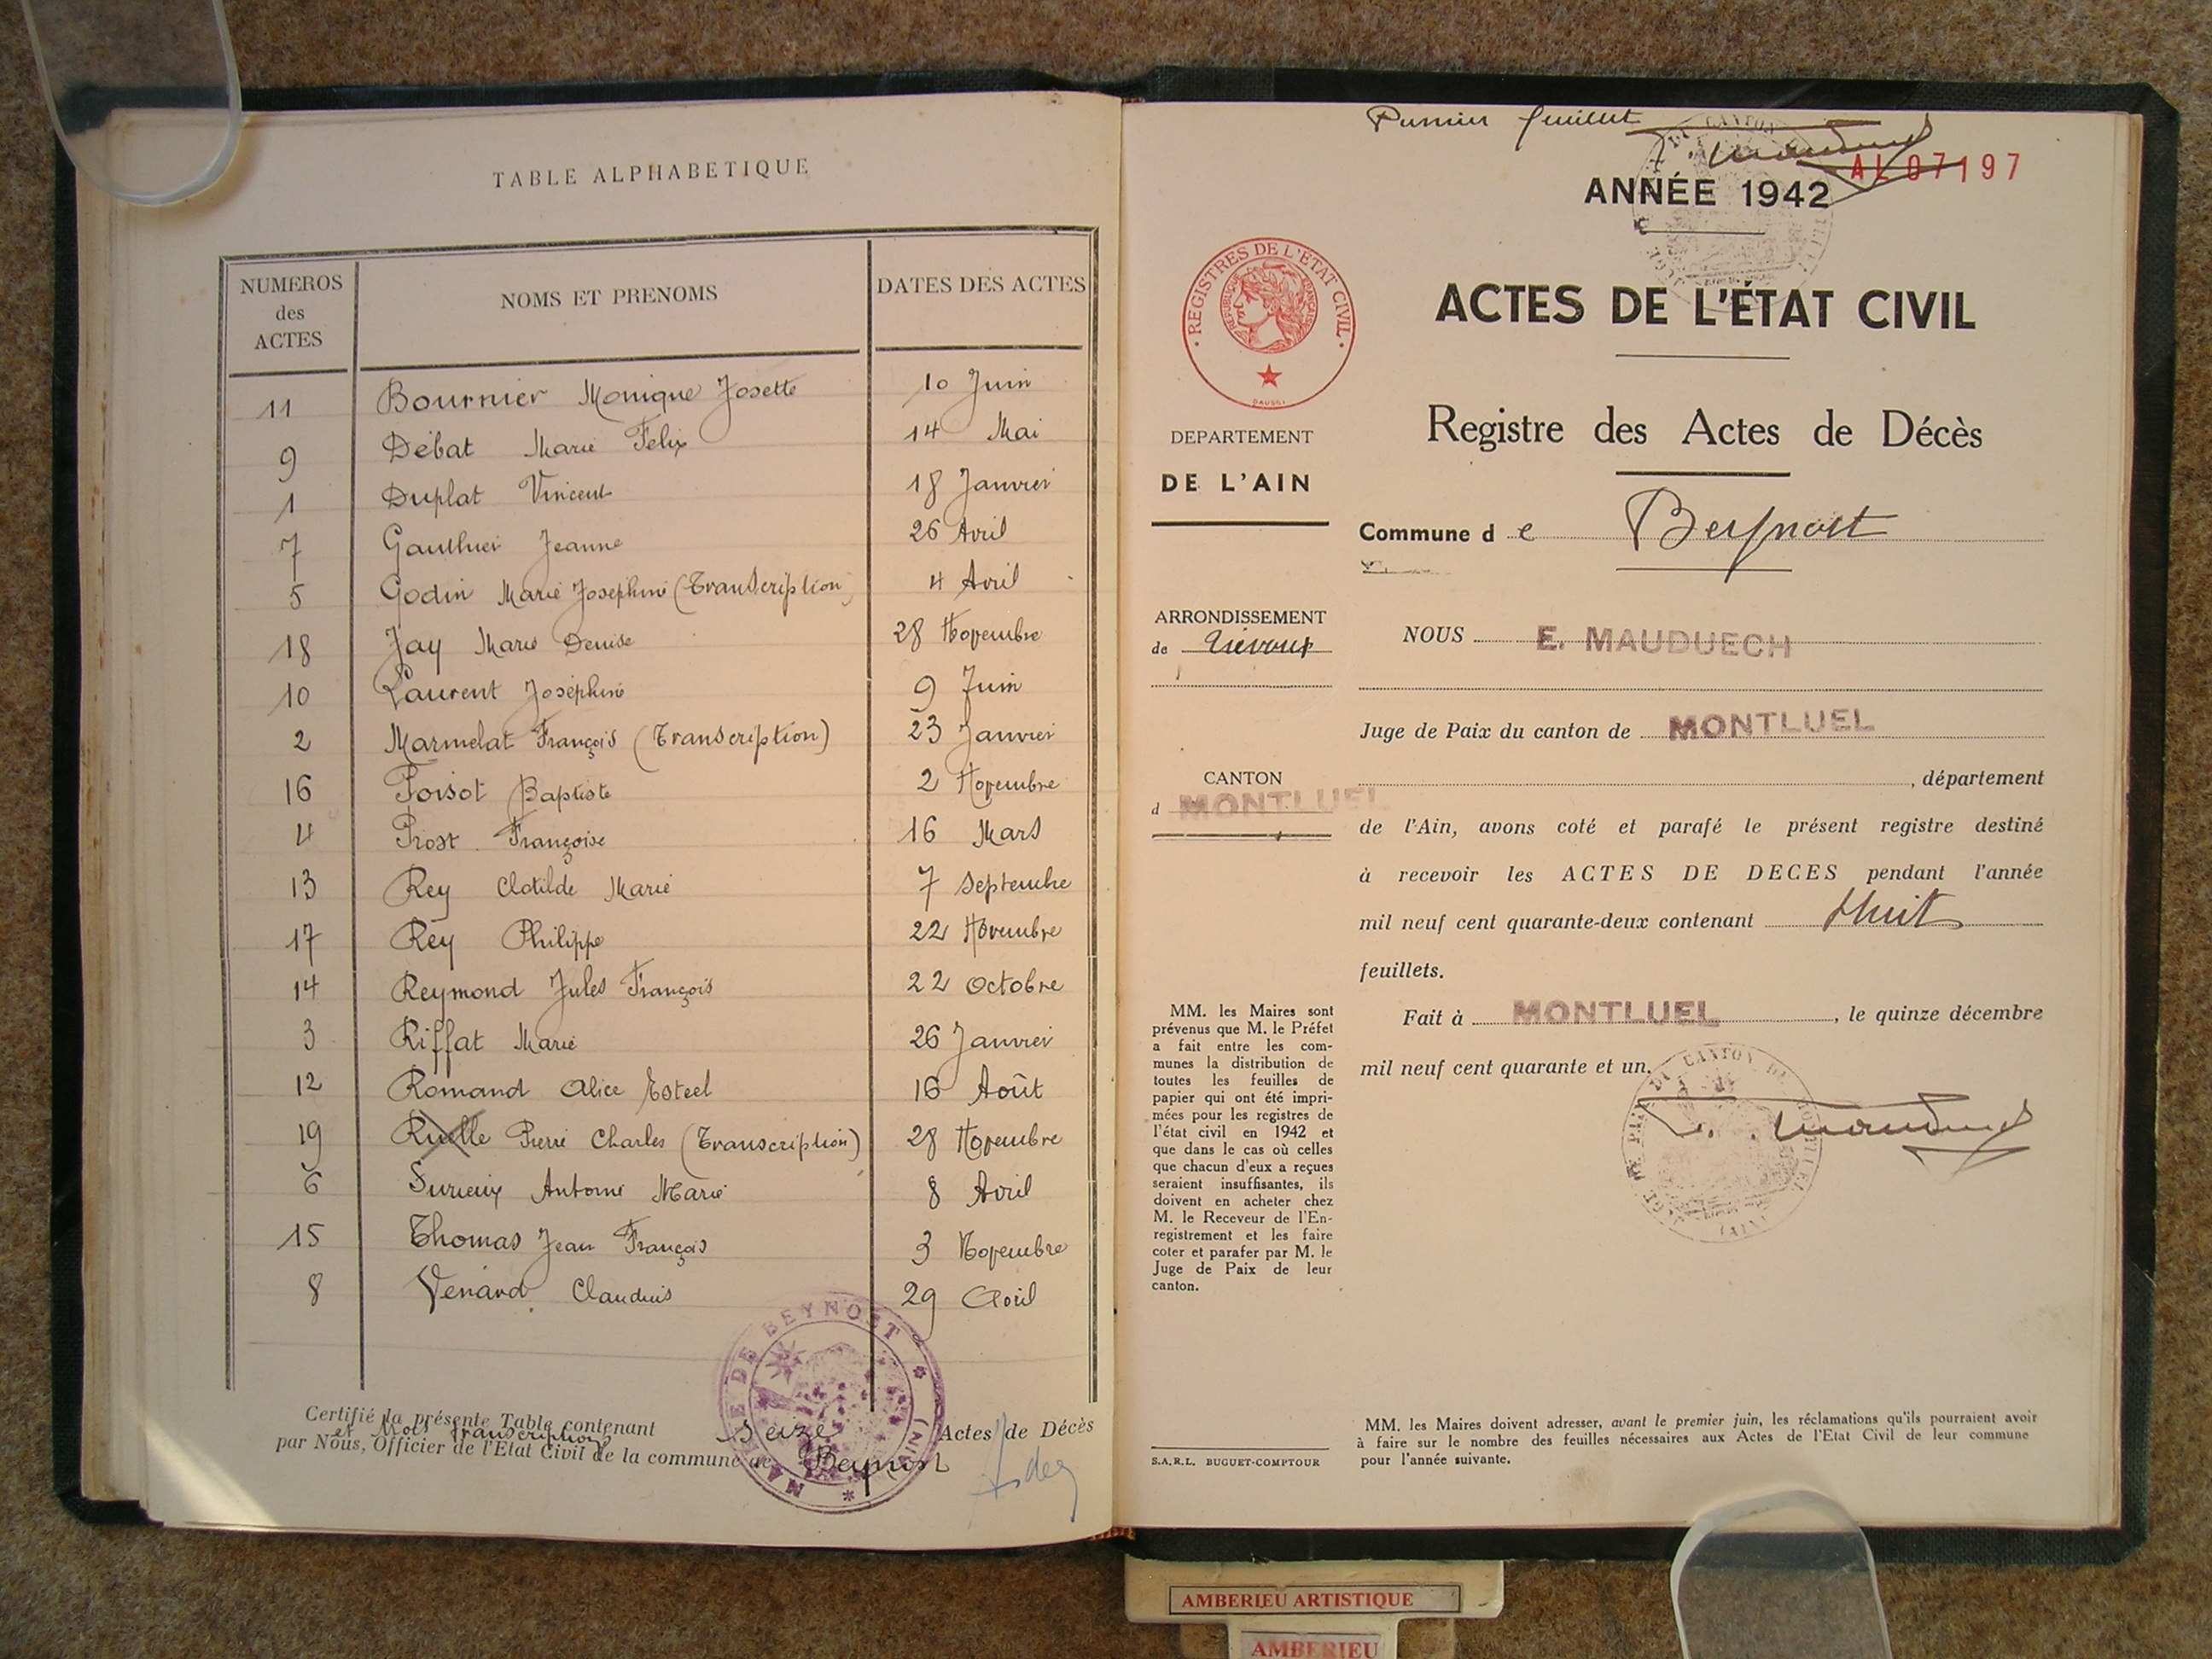 TABLE ALPHABETIQUE
NUMEROS des ACTES NOMS ET PRENOMS DATES DES ACTES
11 Bournier Monique Josette 10 Juin
9 Débat Marie Felix 14 Mai
1 Duplat Vincent 18 Janvier
7 Gauthier Jeanne 26 Avril
5 Godin Marie Josephine (Transcription) 4 Avril
18 Jay Marie Denise 28 Novembre
10 Laurent Joséphine 9 Juin
2 Marmelat François (Transcription) 23 Janvier
16 Poisot Baptiste 2 Novembre
4 Prost Françoise 16 Mars
13 Rey Clotilde Marie 7 Septembre
17 Rey Philippe 22 Novembre
14 Reymond Jules François 22 Octobre
3 Riffat Marie 26 Janvier
12 Romand Alice Esteel 16 Août
19 Ruelle Pierre Charles (Transcription) 28 Novembre
6 Surieux Antoine Marie 8 Avril
15 Thomas Jean François 3 Novembre
8 Venard Claudius 29 Avril
Certifié la présente Table contenant seize Actes de Décès
et trois transcriptions
par Nous, Officier de l'Etat Civil de la commune de Beynost
MAIRIE DE BEYNOST (AIN)
Premier feuillet
AL 07197
ANNÉE 1942
ACTES DE L'ÉTAT CIVIL
REGISTRES DE L'ETAT CIVIL
REPUBLIQUE FRANÇAISE
Registre des Actes de Décès
DEPARTEMENT
DE L'AIN
Commune d e Beynost
ARRONDISSEMENT
de Trévoux
NOUS E. MAUDUECH
Juge de Paix du canton de MONTLUEL
CANTON
d MONTLUEL
, département
de l'Ain, avons coté et parafé le présent registre destiné
à recevoir les ACTES DE DECES pendant l'année
mil neuf cent quarante-deux contenant Huit
feuillets.
Fait à MONTLUEL, le quinze décembre
mil neuf cent quarante et un.
MM. les Maires sont
prévenus que M. le Préfet
a fait entre les com-
munes la distribution de
toutes les feuilles de
papier qui ont été impri-
mées pour les registres de
l'état civil en 1942 et
que dans le cas où celles
que chacun d'eux a reçues
seraient insuffisantes, ils
doivent en acheter chez
M. le Receveur de l'En-
registrement et les faire
coter et parafer par M. le
Juge de Paix de leur
canton.
S.A.R.L. BUGUET-COMPTOUR
MM. les Maires doivent adresser, avant le premier juin, les réclamations qu'ils pourraient avoir
à faire sur le nombre des feuilles nécessaires aux Actes de l'Etat Civil de leur commune
pour l'année suivante.
AMBERIEU ARTISTIQUE
AMBERIEU